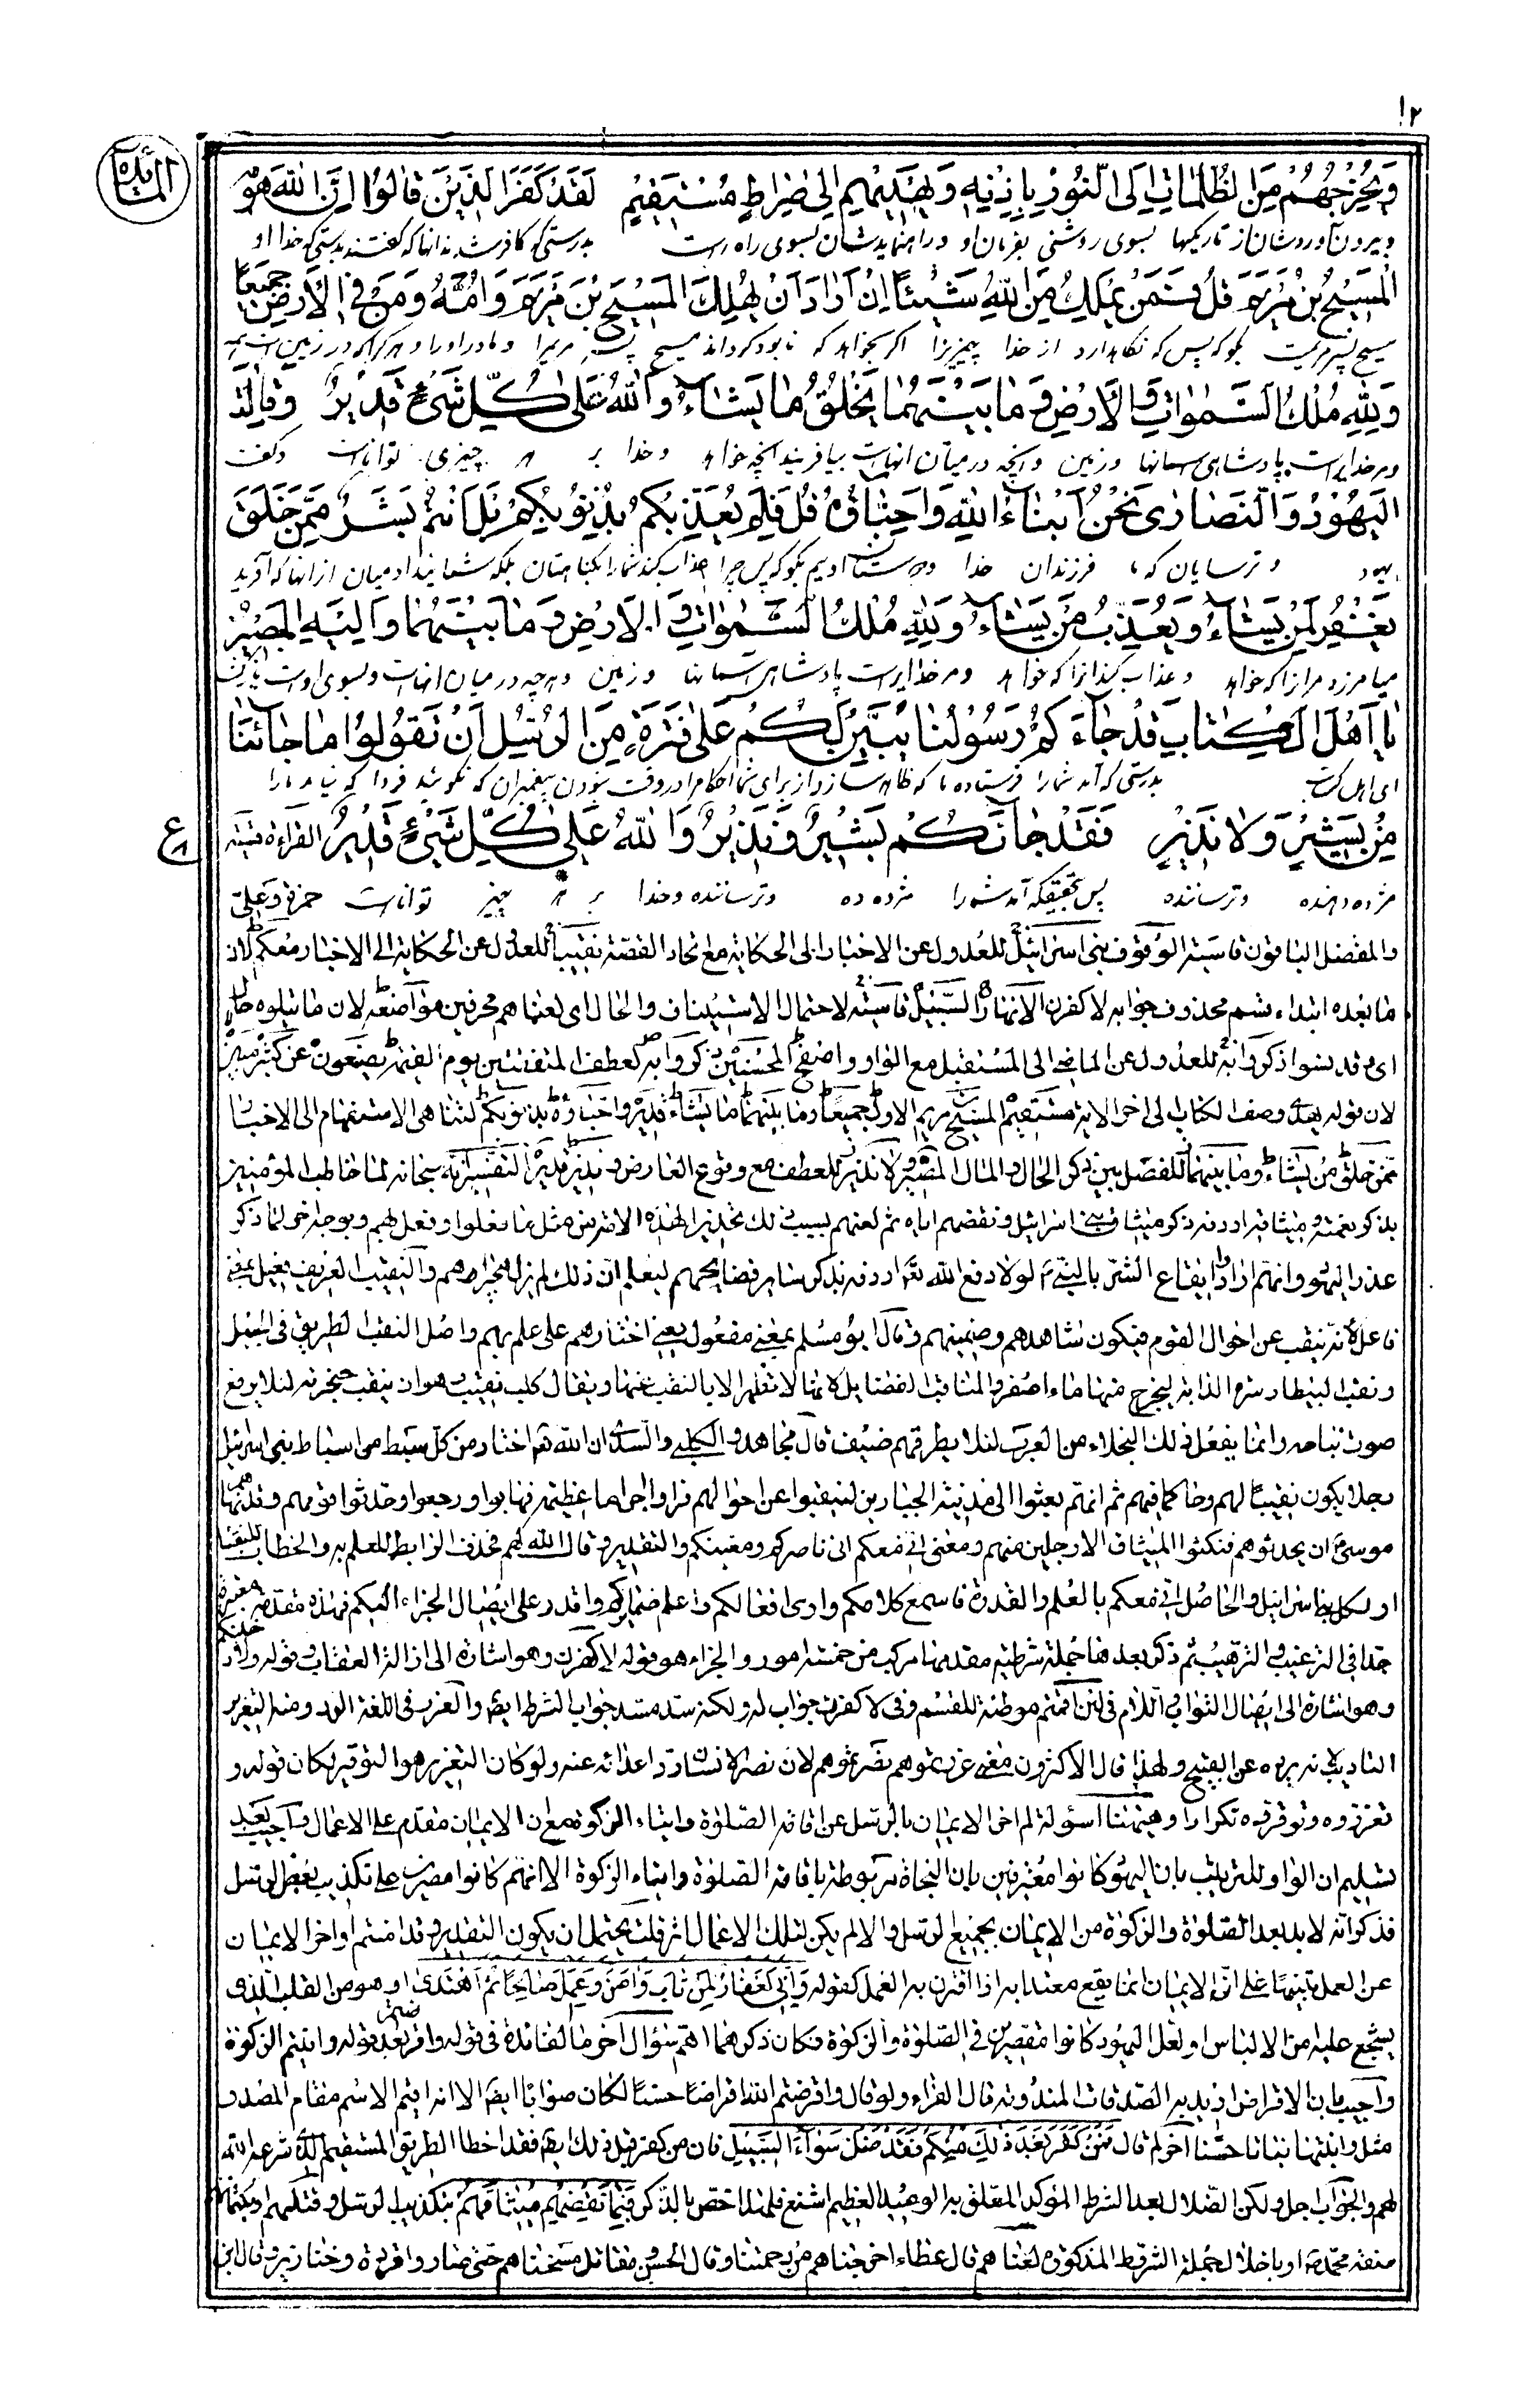 ١٢
المائدة
وَيُخْرِجُهُمْ مِنَ الظُّلُمَاتِ إِلَى النُّورِ بِإِذْنِهِ وَيَهْدِيهِمْ إِلَى صِرَاطٍ مُسْتَقِيمٍ لَقَدْ كَفَرَ الَّذِينَ قَالُوا إِنَّ اللَّهَ هُوَ
و بیرون آورد شان از تاریکیها بسوی روشنی بفرمان او و راهنماید شان بسوی راه راست بدرستی که کافر شدند انها که گفتند بدرستی که خدا او
الْمَسِيحُ بْنُ مَرْيَمَ قُلْ فَمَنْ يَمْلِكُ مِنَ اللَّهِ شَيْئًا إِنْ أَرَادَ أَنْ يُهْلِكَ الْمَسِيحَ بْنَ مَرْيَمَ وَأُمَّهُ وَمَنْ فِي الْأَرْضِ جَمِيعًا
مسیح پسر مریمست بگو که پس که نگاه دارد از خدا چیزیرا اگر بخواهد که نابود کرداند مسیح پسر مریمرا و مادر اورا و هر کرا که در زمین است همه
وَلِلَّهِ مُلْكُ السَّمَوَاتِ وَالْأَرْضِ وَمَا بَيْنَهُمَا يَخْلُقُ مَا يَشَاءُ وَاللَّهُ عَلَى كُلِّ شَيْءٍ قَدِيرٌ وَقَالَتِ
و مر خدایراست پادشاهی اسمانها و زمین و انچه در میان انهاست بیافریند انچه خواهد و خدا بر هر چیزی تواناست و گفت
الْيَهُودُ وَالنَّصَارَى نَحْنُ أَبْنَاءُ اللَّهِ وَأَحِبَّاؤُهُ قُلْ فَلِمَ يُعَذِّبُكُمْ بِذُنُوبِكُمْ بَلْ أَنْتُمْ بَشَرٌ مِمَّنْ خَلَقَ
یهود و ترسایان که ما فرزندان خدا و دوستان اوئیم بگو که پس چرا عذاب کند شمارا بگناهتان بلکه شمائید ادمیان از انها که آفرید
يَغْفِرُ لِمَنْ يَشَاءُ وَيُعَذِّبُ مَنْ يَشَاءُ وَلِلَّهِ مُلْكُ السَّمَوَاتِ وَالْأَرْضِ وَمَا بَيْنَهُمَا وَإِلَيْهِ الْمَصِيرُ
میامرزد مرانرا که خواهد و عذاب کند انرا که خواهد و مر خدایراست پادشاهی اسمانها و زمین و هرچه در میان انهاست و بسوی اوست بازگشت
يَا أَهْلَ الْكِتَابِ قَدْ جَاءَكُمْ رَسُولُنَا يُبَيِّنُ لَكُمْ عَلَى فَتْرَةٍ مِنَ الرُّسُلِ أَنْ تَقُولُوا مَا جَاءَنَا
ای اهل کتاب بدرستی که آمد شمارا فرستاده ما که ظاهر سازد از برای شما احکامرا در وقت نبودن پیغمبران که نگوئید فردا که نیامد مارا
مِنْ بَشِيرٍ وَلَا نَذِيرٍ فَقَدْ جَاءَكُمْ بَشِيرٌ وَنَذِيرٌ وَاللَّهُ عَلَى كُلِّ شَيْءٍ قَدِيرٌ القراءة قسية
ع
مژده دهنده و ترساننده پس بتحقیقکه آمد شمارا مژده ده و ترساننده و خدا بر هر چیز تواناست حمزة وعلی
والمفضل الباقون قاسية الوقوف بنى اسرائيل للعدول عن الاخبار الى الحكاية مع اتحاد القصة نقيبا للعدول عن الحكاية الى الاخبار معكم لان
ما بعده ابتداء قسم محذوف جوابه لاكفرن الانهار السبيل قاسية لاحتمال الاستيناف والحال اى لعناهم محرفين مواضعه لان ما يتلوه حال
اى وقد نسوا ذكروا به للعدول عن الماضى الى المستقبل مع الواو واصفح المحسنين ذكروا به لعطف المتفقتين يوم القيمة يصنعون عن كثير مبين
لان قوله يهدى وصف الكتاب الى اخر الاية مستقيم المسيح بن مريم الاول جميعا وما بينهما ما يشاء قدير واحباؤه بذنوبكم لتناهى الاستفهام الى الاخبار
ممن خلق من يشاء وما بينهما للفصل بين ذكر الحال والمال المصير ولا نذير للعطف مع وقوع العارض ونذير قدير التفسير انه سبحانه لما خاطب المؤمنين
بذكر نعمته وميثاقه اردفه ذكر ميثاق بنى اسرائيل ونقضهم اياه ثم لعنهم بسبب ذلك تحذيرا لهذه الامة من مثل ما فعلوا وفعل بهم وبوجه اخر لما ذكر
غدر اليهود وانهم ارادوا ايقاع الشر بالنبى لولا دفع الله تعالى اردفه بذكر ساير فضايحهم ليعلم ان ذلك لم يزل هجيراهم والنقيب العريف فعيل بمعنى
فاعل لانه ينقب عن احوال القوم فيكون شاهدهم وضمينهم وقال ابو مسلم بمعنى مفعول يعنى اختارهم على علم بهم واصل النقب الطريق فى الجبل
ونقب البيطار سرة الدابة ليخرج منها ماء اصفر والمناقب الفضايل لانها لا تظهر الا بالنقب عنها ويقال كلب نقيب وهو ان ينقب حنجرته لئلا يرفع
صوت نباحه وانما يفعل ذلك البخلاء من العرب لئلا يطرقهم ضيف قال مجاهد والكلبى والسدى ان الله تعالى اختار من كل سبط من اسباط بنى اسرائيل
رجلا يكون نقيبا لهم وحاكما فيهم ثم انهم بعثوا الى مدينة الجبارين لينقبوا عن احوالهم فراوا اجراما عظيمة فهابوا ورجعوا وحدثوا قومهم وقد نهاهم
موسى ان يحدثوهم فنكثوا الميثاق الا رجلين منهم ومعنى انى معكم انى ناصركم ومعينكم والتقدير وقال الله لهم فحذف الرابط للعلم به والخطاب للنقباء
او لكل بنى اسرائيل والحاصل انى معكم بالعلم والقدرة فاسمع كلامكم وارى افعالكم واعلم ضمائركم واقدر على ايصال الجزاء اليكم فهذه مقدمة معتبرة
جدا فى الترغيب والترهيب ثم ذكر بعدها جملة شرطية مقدمها مركب من خمسة امور والجزاء هو قوله لاكفرن وهو اشارة الى ازالة العقاب وقوله ولادخلنكم
وهو اشارة الى ايصال الثواب واللام فى لئن اقمتم موطئة للقسم وفى لاكفرن جواب له ولكنه سد مسد جواب الشرط ايضا والعزر فى اللغة الرد ومنه التعزير
التاديب لانه يرده عن القبيح ولهذا قال الاكثرون معنى عزرتموهم نصرتموهم لان نصر الانسان رد اعدائه عنه ولو كان التعزير هو التوقير لكان قوله و
تعزروه وتوقروه تكرارا وههنا اسؤلة لم اخر الايمان بالرسل عن اقامة الصلوة وايتاء الزكوة مع ان الايمان مقدم على الاعمال واجيب بعد
تسليم ان الواو للترتيب بان اليهود كانوا معترفين بان النجاة مربوطة باقامة الصلوة وايتاء الزكوة الا انهم كانوا مصرين على تكذيب بعض الرسل
فذكر انه لا بد بعد الصلوة والزكوة من الايمان بجميع الرسل والا لم يكن لتلك الاعمال اثر قلت يحتمل ان يكون التقدير وقد امنتم او اخر الايمان
عن العمل تنبيها على ان الايمان انما يقع معتدا به اذا اقترن به العمل كقوله وَإِنِّي لَغَفَّارٌ لِمَنْ تَابَ وَآمَنَ وَعَمِلَ صَالِحًا ثُمَّ اهْتَدَى او هو من القلب الذى
يشجع عليه امن الالباس او لعل اليهود كانوا مقصرين فى الصلوة والزكوة فكان ذكرهما اهم سؤال اخر ما الفائدة فى قوله واقرضتم بعد قوله واتيتم الزكوة
واجيب بان الاقراض اريد به الصدقات المندوبة قال الفراء ولو قال واقرضتم الله اقراضا حسنا لكان صوابا ايضا الا انه اقيم الاسم مقام المصدر
مثل وانبتها نباتا حسنا اخر لم قال فَمَنْ كَفَرَ بَعْدَ ذَلِكَ مِنْكُمْ فَقَدْ ضَلَّ سَوَاءَ السَّبِيلِ فان من كفر قبل ذلك ايضا فقد اخطا الطريق المستقيم الذى شرعه الله
لهم والجواب اجل ولكن الضلال بعد الشرط المؤكد المعلق به الوعد العظيم اشنع فلهذا اختص بالذكر فَبِمَا نَقْضِهِمْ مِيثَاقَهُمْ بتكذيب الرسل وقتلهم او بكتمانهم
صفة محمد او باخلال جملة الشرط المذكورة لعناهم قال عطاء اخرجناهم من رحمتنا وقال الحسن ومقاتل مسخناهم حتى صاروا قردة وخنازير وقال ابن